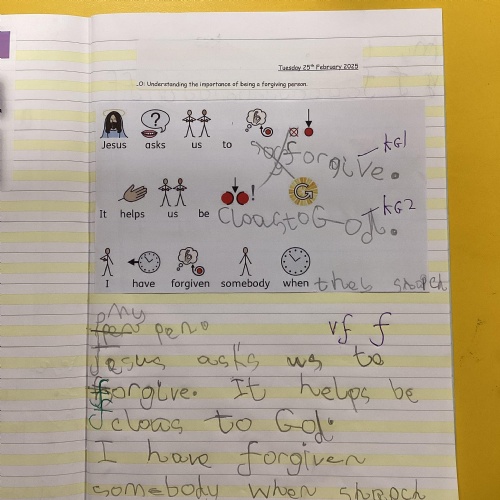 Tuesday 25th February 2025
.O: Understanding the importance of being a forgiving person.
Jesus asks us to forgive. KG1
It helps us be cloastoGod. KG2
I have forgiven somebody when they snach
My
pen. vf f
Jesus asks us to
forgive. It helps be
cloas to God.
I have forgiven
somebody when